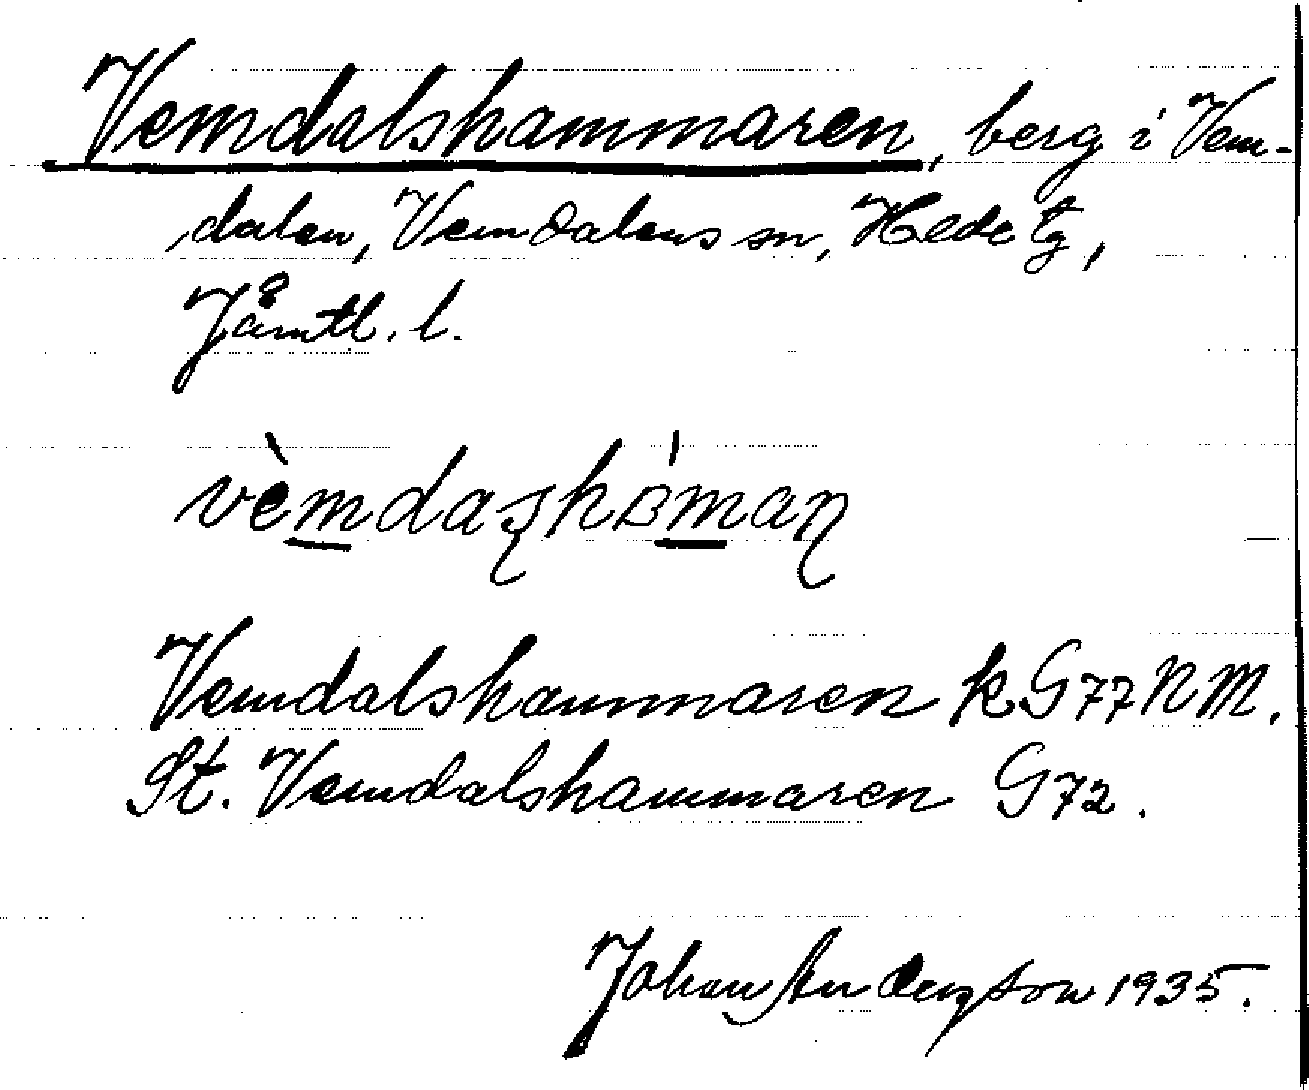 Vemdalshammaren, berg i Vem-
dalen, Vemdalens sn, Hede tg,
Jämtl. l.
Vemdalshammaren k G77 N M.
St. Vemdalshammaren G72.
Johan Anderzson 1935.